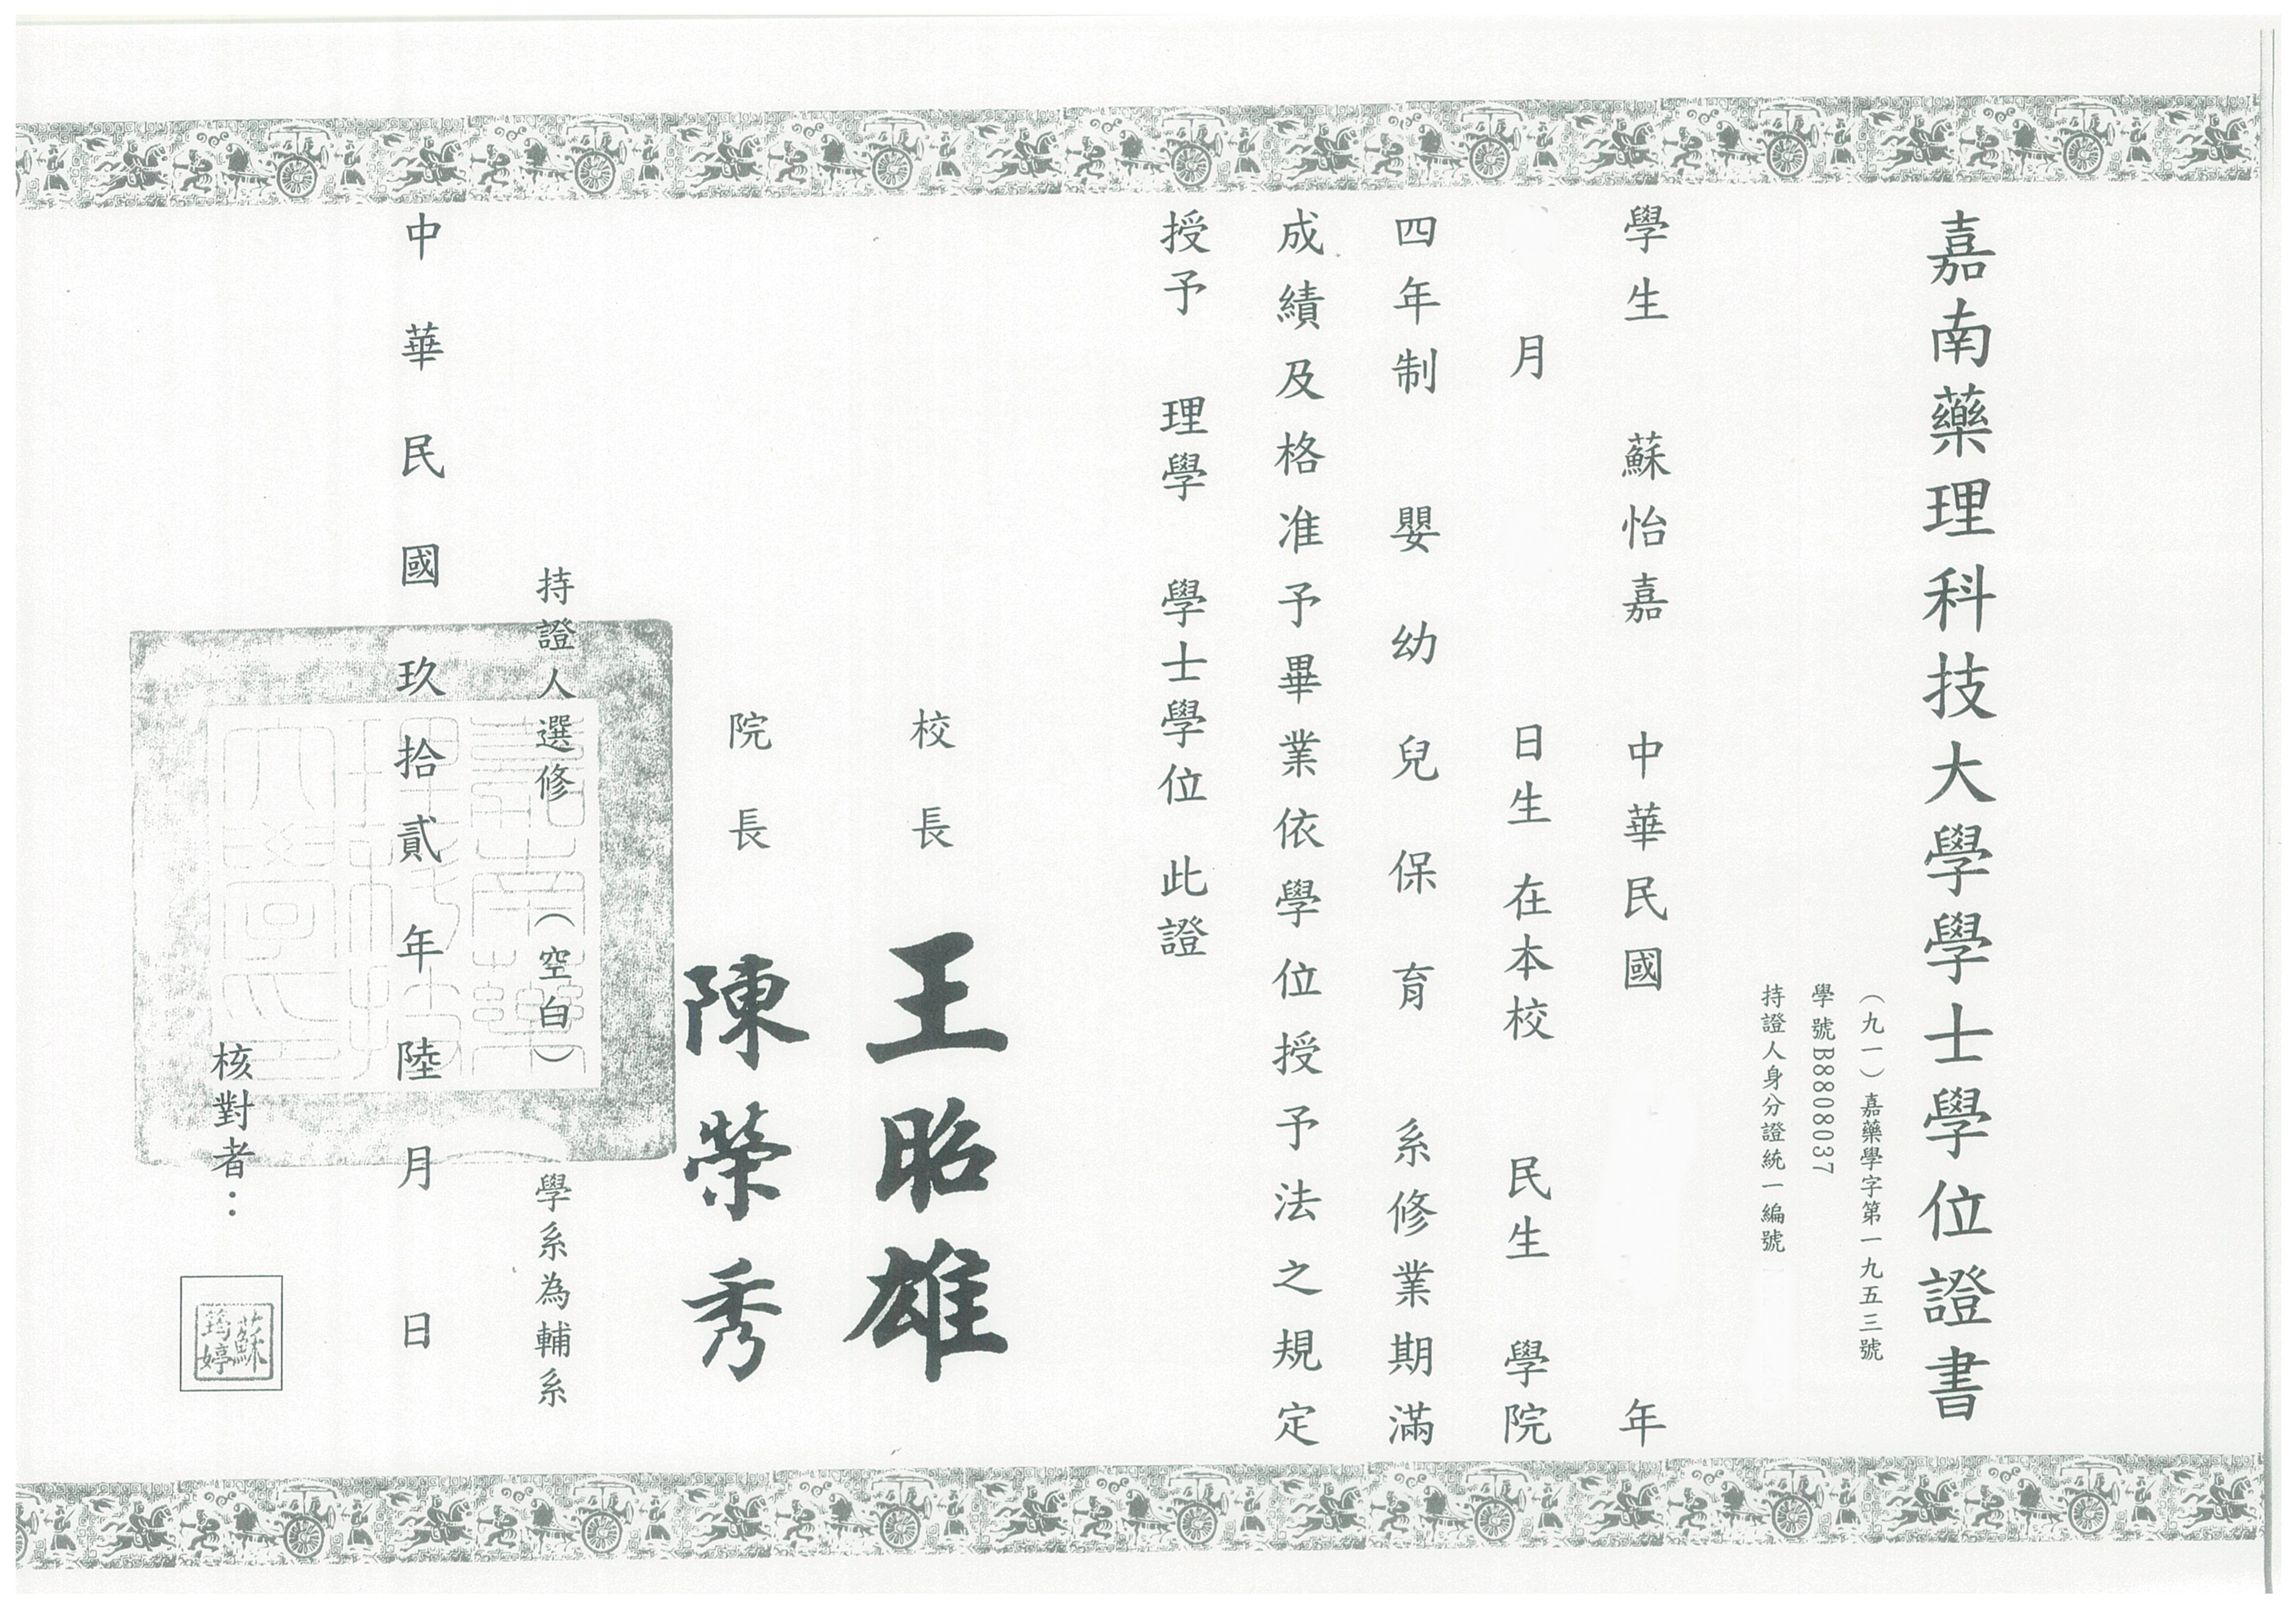 嘉南藥理科技大學學士學位證書
(九一)嘉藥學字第一九五三號
學號B8808037
持證人身分證統一編號
學生 蘇怡嘉 中華民國 年
月 日生在本校 民生 學院
四年制 嬰幼兒保育 系修業期滿
成績及格准予畢業依學位授予法之規定
授予 理學 學士學位 此證
校長 王昭雄
院長 陳榮秀
持證人選修 (空白) 學系為輔系
中華民國玖拾貳年陸月 日
嘉南藥理科技大學印
核對者:
蘇筠婷